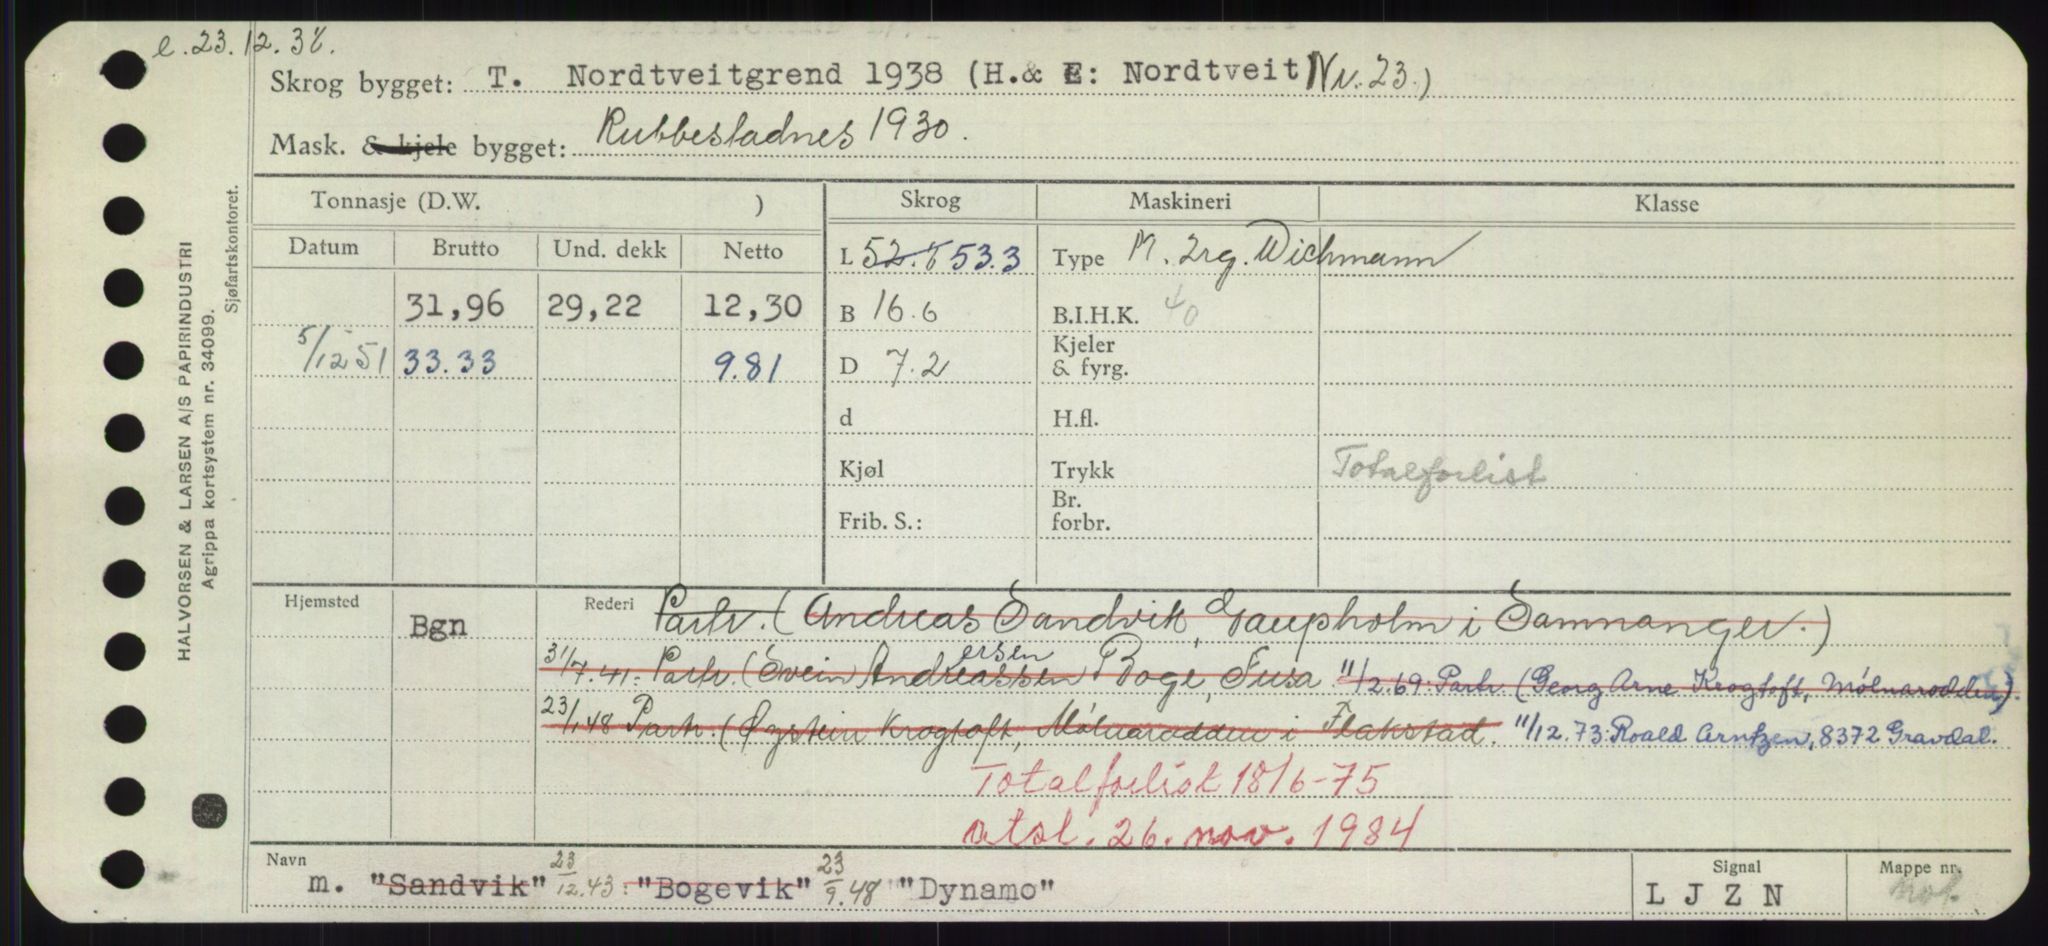 e. 23.12.38.
Skrog bygget: T. Nordtveitgrend 1938 (H.& E: Nordtveit Nr. 23.)
Mask. & kjele bygget: Rubbestadnes 1930.
HALVORSEN & LARSEN A/S PAPIRINDUSTRI
Agrippa kortsystem nr. 34099.
Sjøfartskontoret.
Tonnasje (D.W. ) Skrog Maskineri Klasse
Datum Brutto Und. dekk Netto L 52.8 53.3 Type M. 2rg. Wichmann
31,96 29,22 12,30 B 16.6 B.I.H.K. 40
5/12 51 33.33 9.81 D 7.2 Kjeler & fyrg.
d H.fl.
Kjøl Trykk Totalforlist
Frib. S.: Br. forbr.
Hjemsted Bgn Rederi Partr. (Andreas Sandvik, Gaupholm i Samnanger.)
31/7.41: Partr. (Svein Andreassen ersen Boge, Fusa. 11/2.69: Partr. (Georg Arne Krogtoft, Mølnarodden).
23/1 48 Partr. (Øystein Krogtoft, Mølnarodden i Flakstad. 11/12.73: Roald Arntzen, 8372 Gravdal.
Totalforlist 18/6-75
atsl. 26. nov. 1984
Navn Signal Mappe nr.
m. "Sandvik" 23/12.43: "Bogevik" 23/9.48 "Dynamo" L J Z N